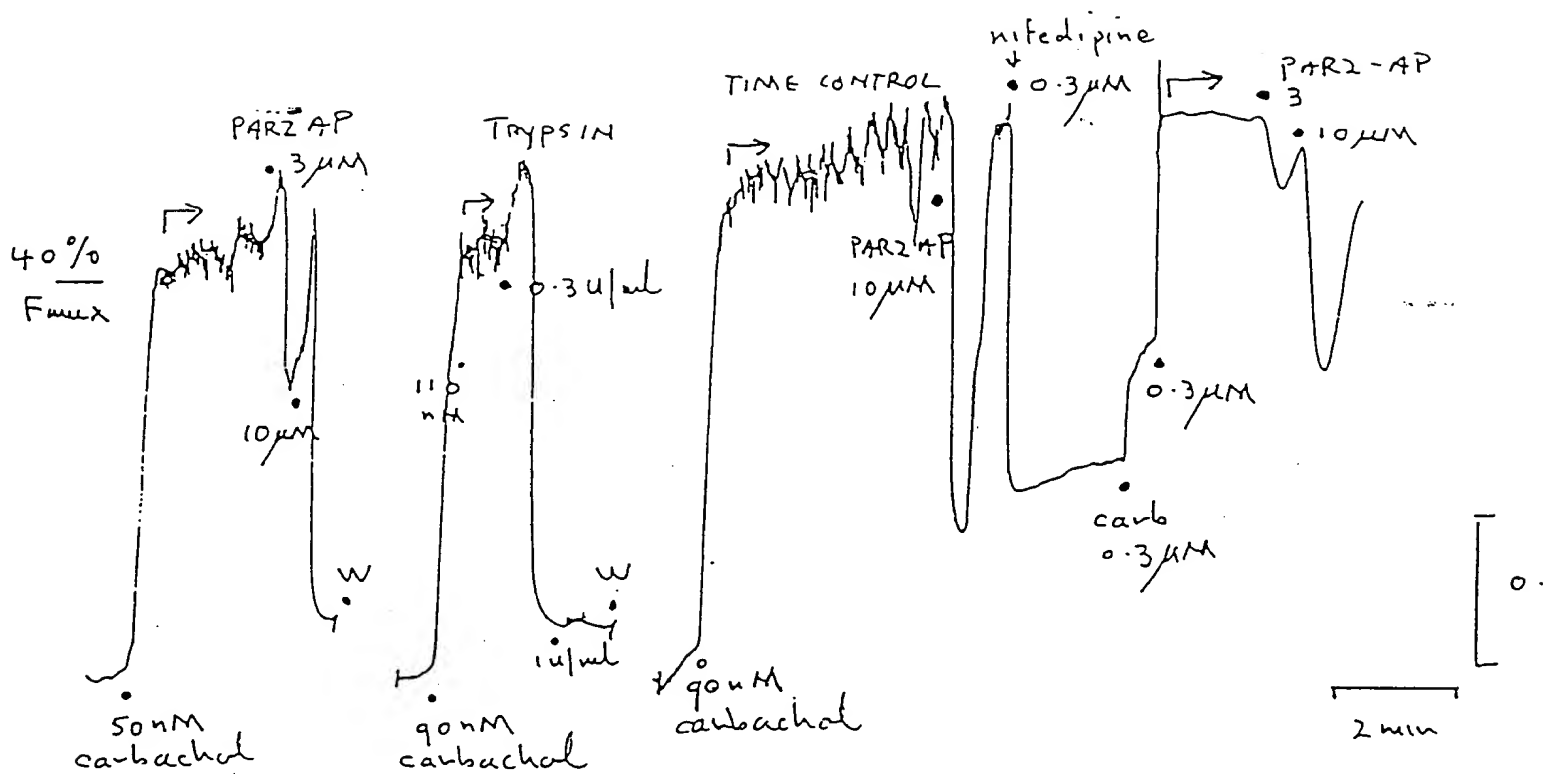 40%
Fmax
PAR2 AP
3 μM
10 μM
W
50 nM
carbachol
TRYPSIN
0.3 u/ml
110
nM
1 u/ml
W
90 nM
carbachol
TIME CONTROL
PAR2 AP
10 μM
90 nM
carbachol
nifedipine
0.3 μM
carb
0.3 μM
0.3 μM
PAR2-AP
3
10 μM
0.
2 min